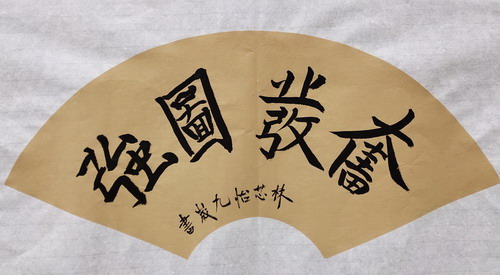 奮發圖強
林芯怡九歲書